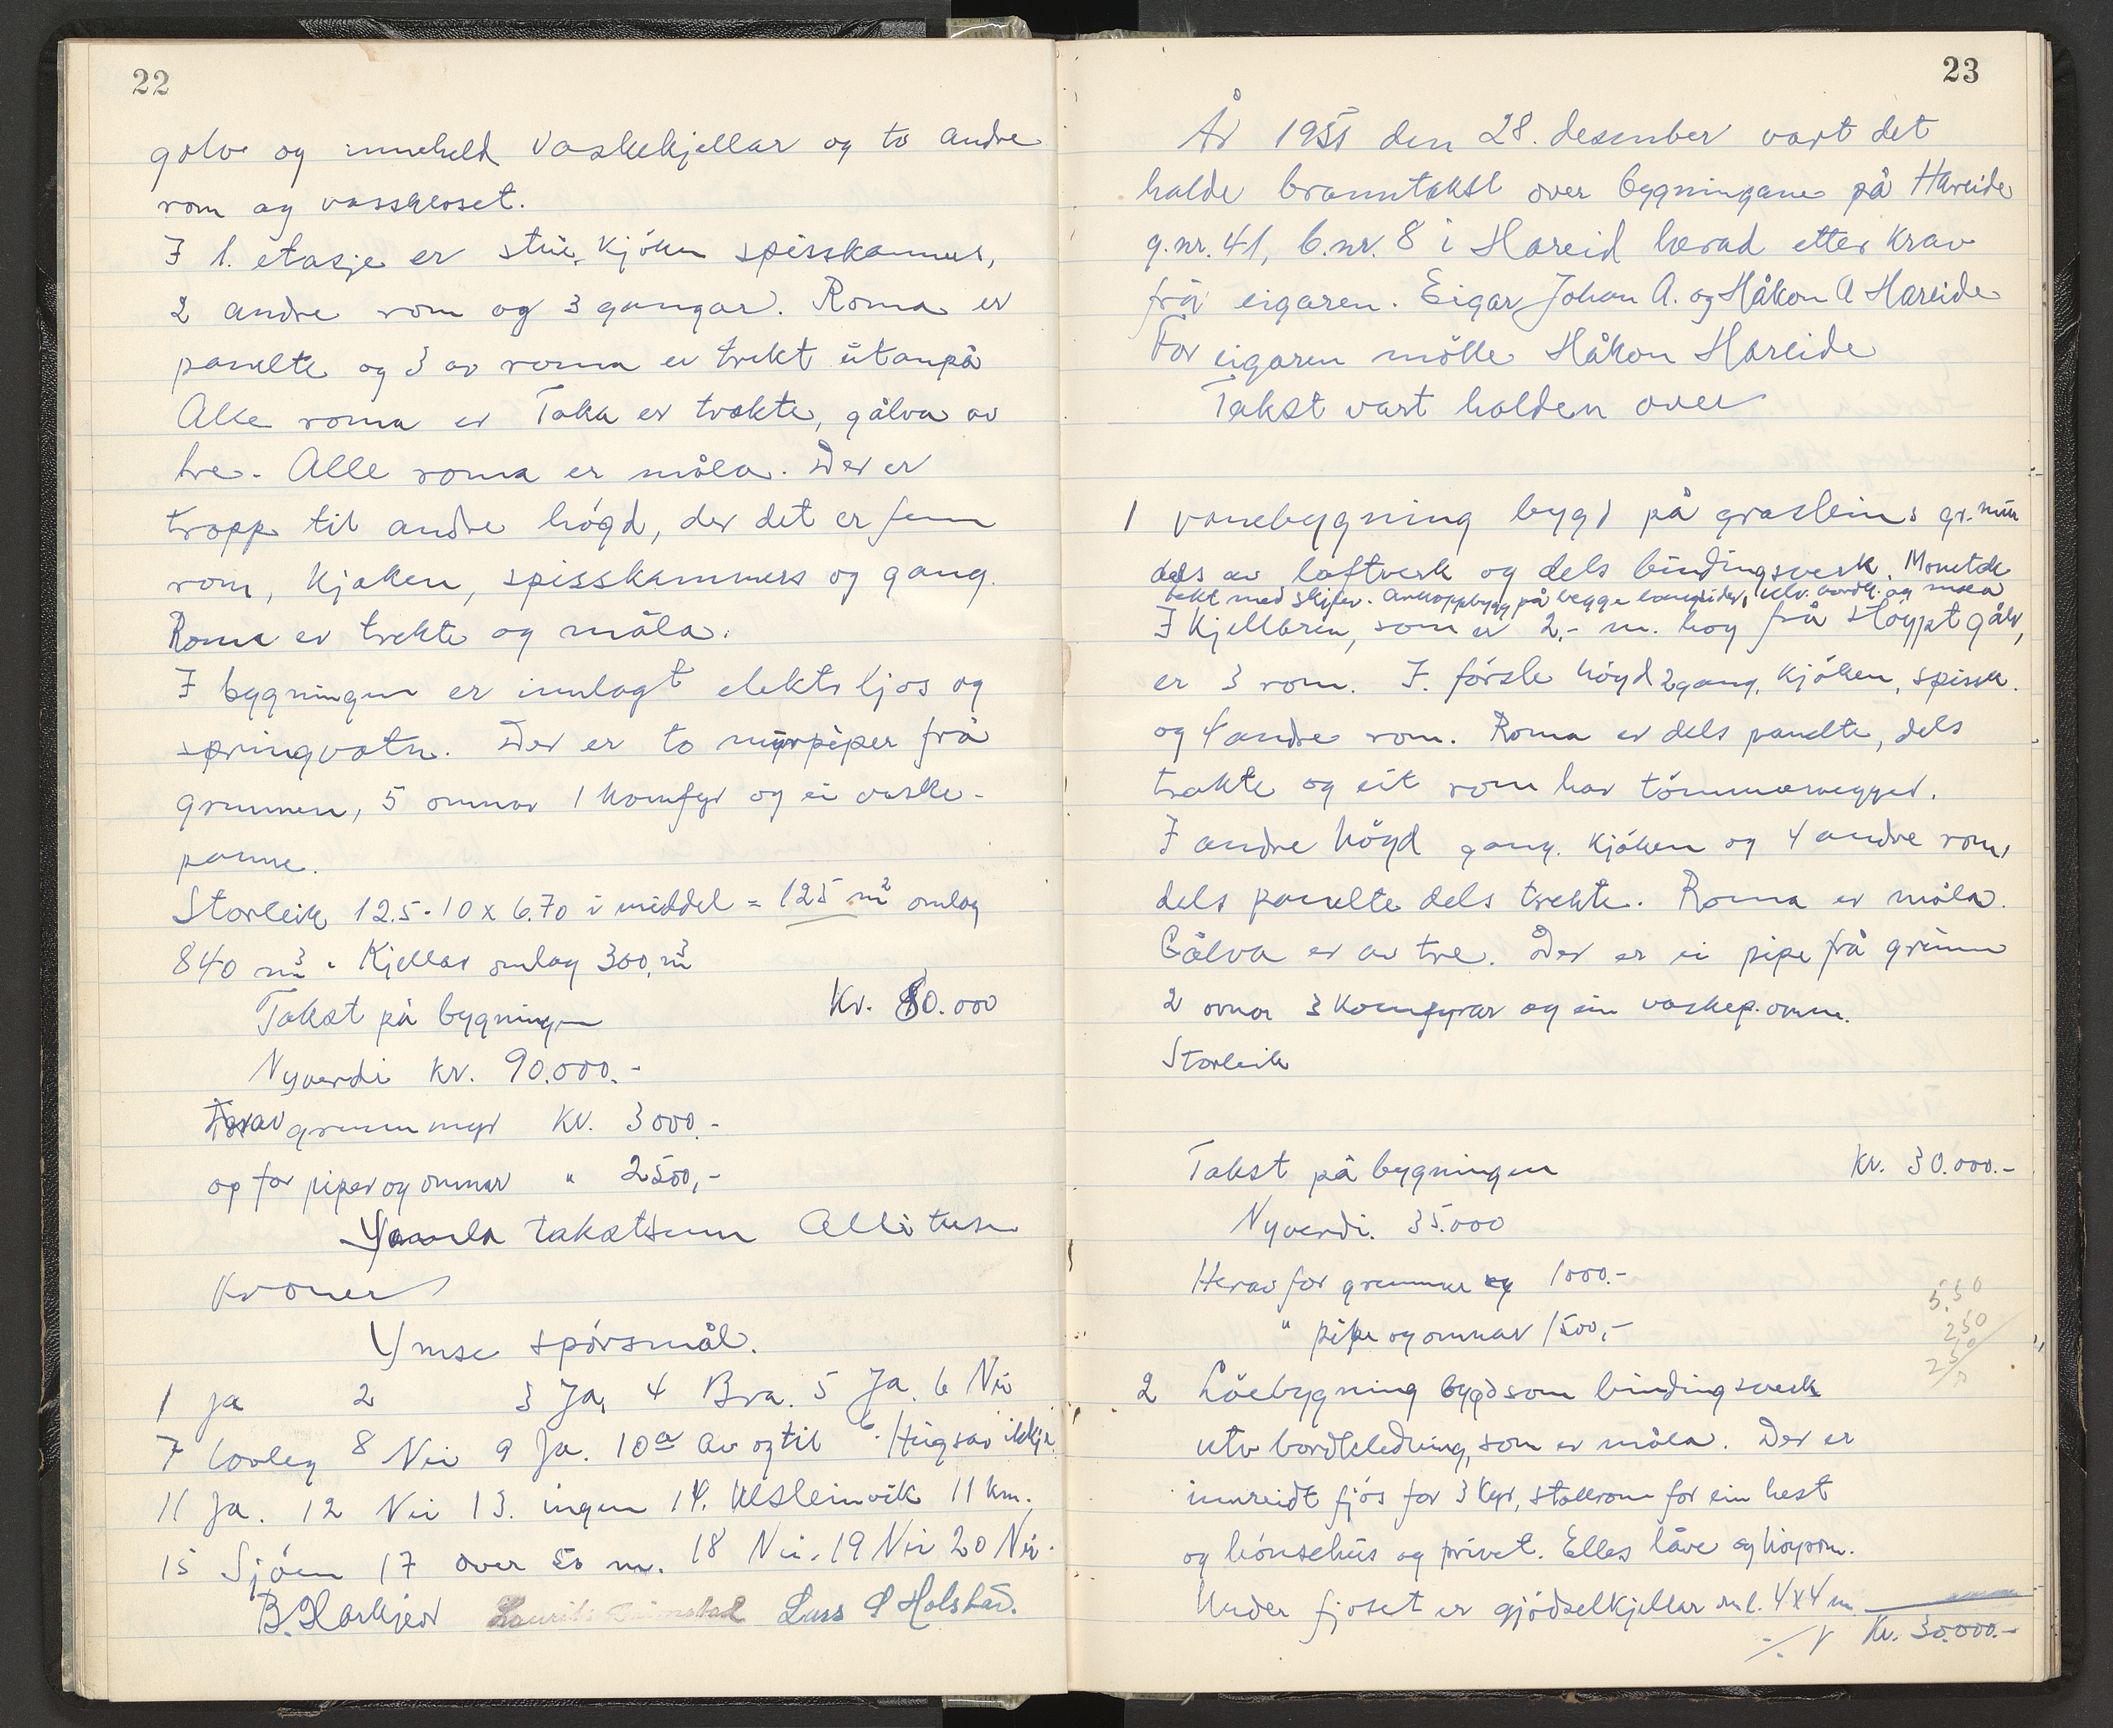 22
golv og inneheld vaskekjellar og to andre
rom og vasskloset.
I 1. etasje er stue, kjöken spisskammers,
2 andre rom og 3 gangar. Roma er
panelte og 3 av roma er trekt utanpå
Alle roma er Taka er trekte, gålva av
tre. Alle roma er måla. Der er
tropp til andre högd, der det er fem
rom, kjøken, spisskammers og gang.
Roma er trekte og måla.
I bygningen er innlagt elektr ljos og
springvatn. Der er to murpiper frå
grunnen, 5 omnar 1 komfyr og ei vaske-
panne.
Storleik 12.5 - 10 x 6.70 i middel = 125 m² omlag
840 m³. Kjellar omlag 300 m³
Takst på bygningen Kr. 80.000
Nyverdi kr. 90.000.-
Herav grunnmyr Kr. 3000.-
op for piper og omnar " 2500,-
Samla takstsum Åtti tusen
Kroner
Ymse spörsmål.
1 Ja 2 3 Ja, 4 Bra. 5 Ja. 6 Nei
7 Lovleg 8 Nei 9 Ja. 10 a Av og til b. Hugsar ikkje.
11 Ja. 12 Nei 13. ingen 14. Ulsteinvik 11 km.
15 Sjöen 17 over 50 m. 18 Nei. 19 Nei 20 Nei.
B. Lars Holstad.
23
År 1955 den 28. desember vart det
halde branntakst over bygningane på Hareide
g.nr. 41, b.nr. 8 i Hareid herad etter krav
frå eigaren. Eigar Johan A. og Håkon A Hareide
For eigaren mötte Håkon Hareide
Takst vart halden over
1 vonebygning bygd på gråsteins gr.mur
dels av laftverk og dels bindingsverk. Monetak
tekt med skifer. Arkoppbygg på begge langsider, utv. bordk. og måla
I Kjellaren, som er 2,- m. høg frå støypt gålv,
er 3 rom. I. förste högd 2 gang, kjöken, spissk.
og 4 andre rom. Roma er dels panelte, dels
trekte og eit rom har tömmervegger.
I andre högd gang. kjöken og 4 andre rom,
dels panelte dels trekte. Roma er måla.
Gålva er av tre. Der er ei pipe frå grunn
2 ovnar 3 komfyrar og ein vaskep.omn.
Storleik
Takst på bygningen Kr. 30.000.-
Nyverdi. 35.000
Herav for grunnmur og 1000.-
" pipe og omnar 1500,-
5.50
250
2 Löebygning bygd som bindingsverk
utv bordkledning, som er måla. Der er
innreidt fjös for 3 kyr, stallrom for ein hest
og hönsehus og privet. Elles låve og höyrom.
Under fjoset er gjödselkjellar m l. 4x4 m
Kr. 30.000.-